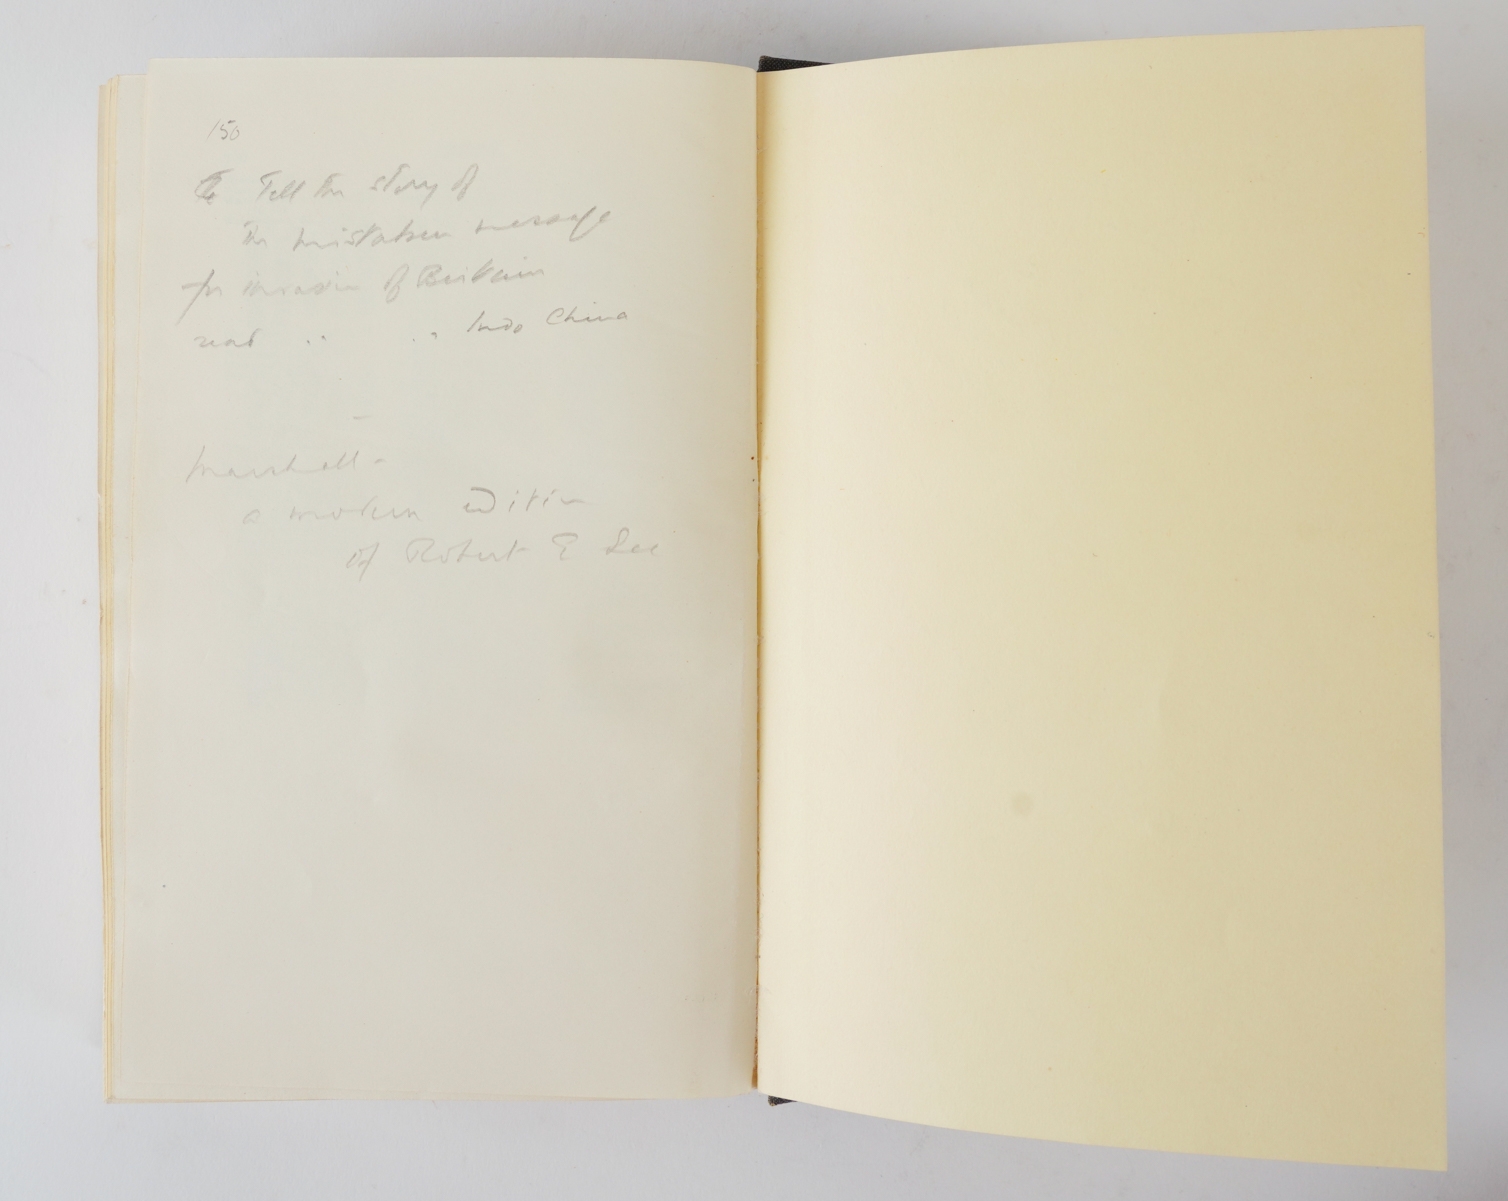 150
To Tell the story of
the mistaken message
for invasion of Britain
read " " Indo China
Marshall -
a modern edition
of Robert E Lee